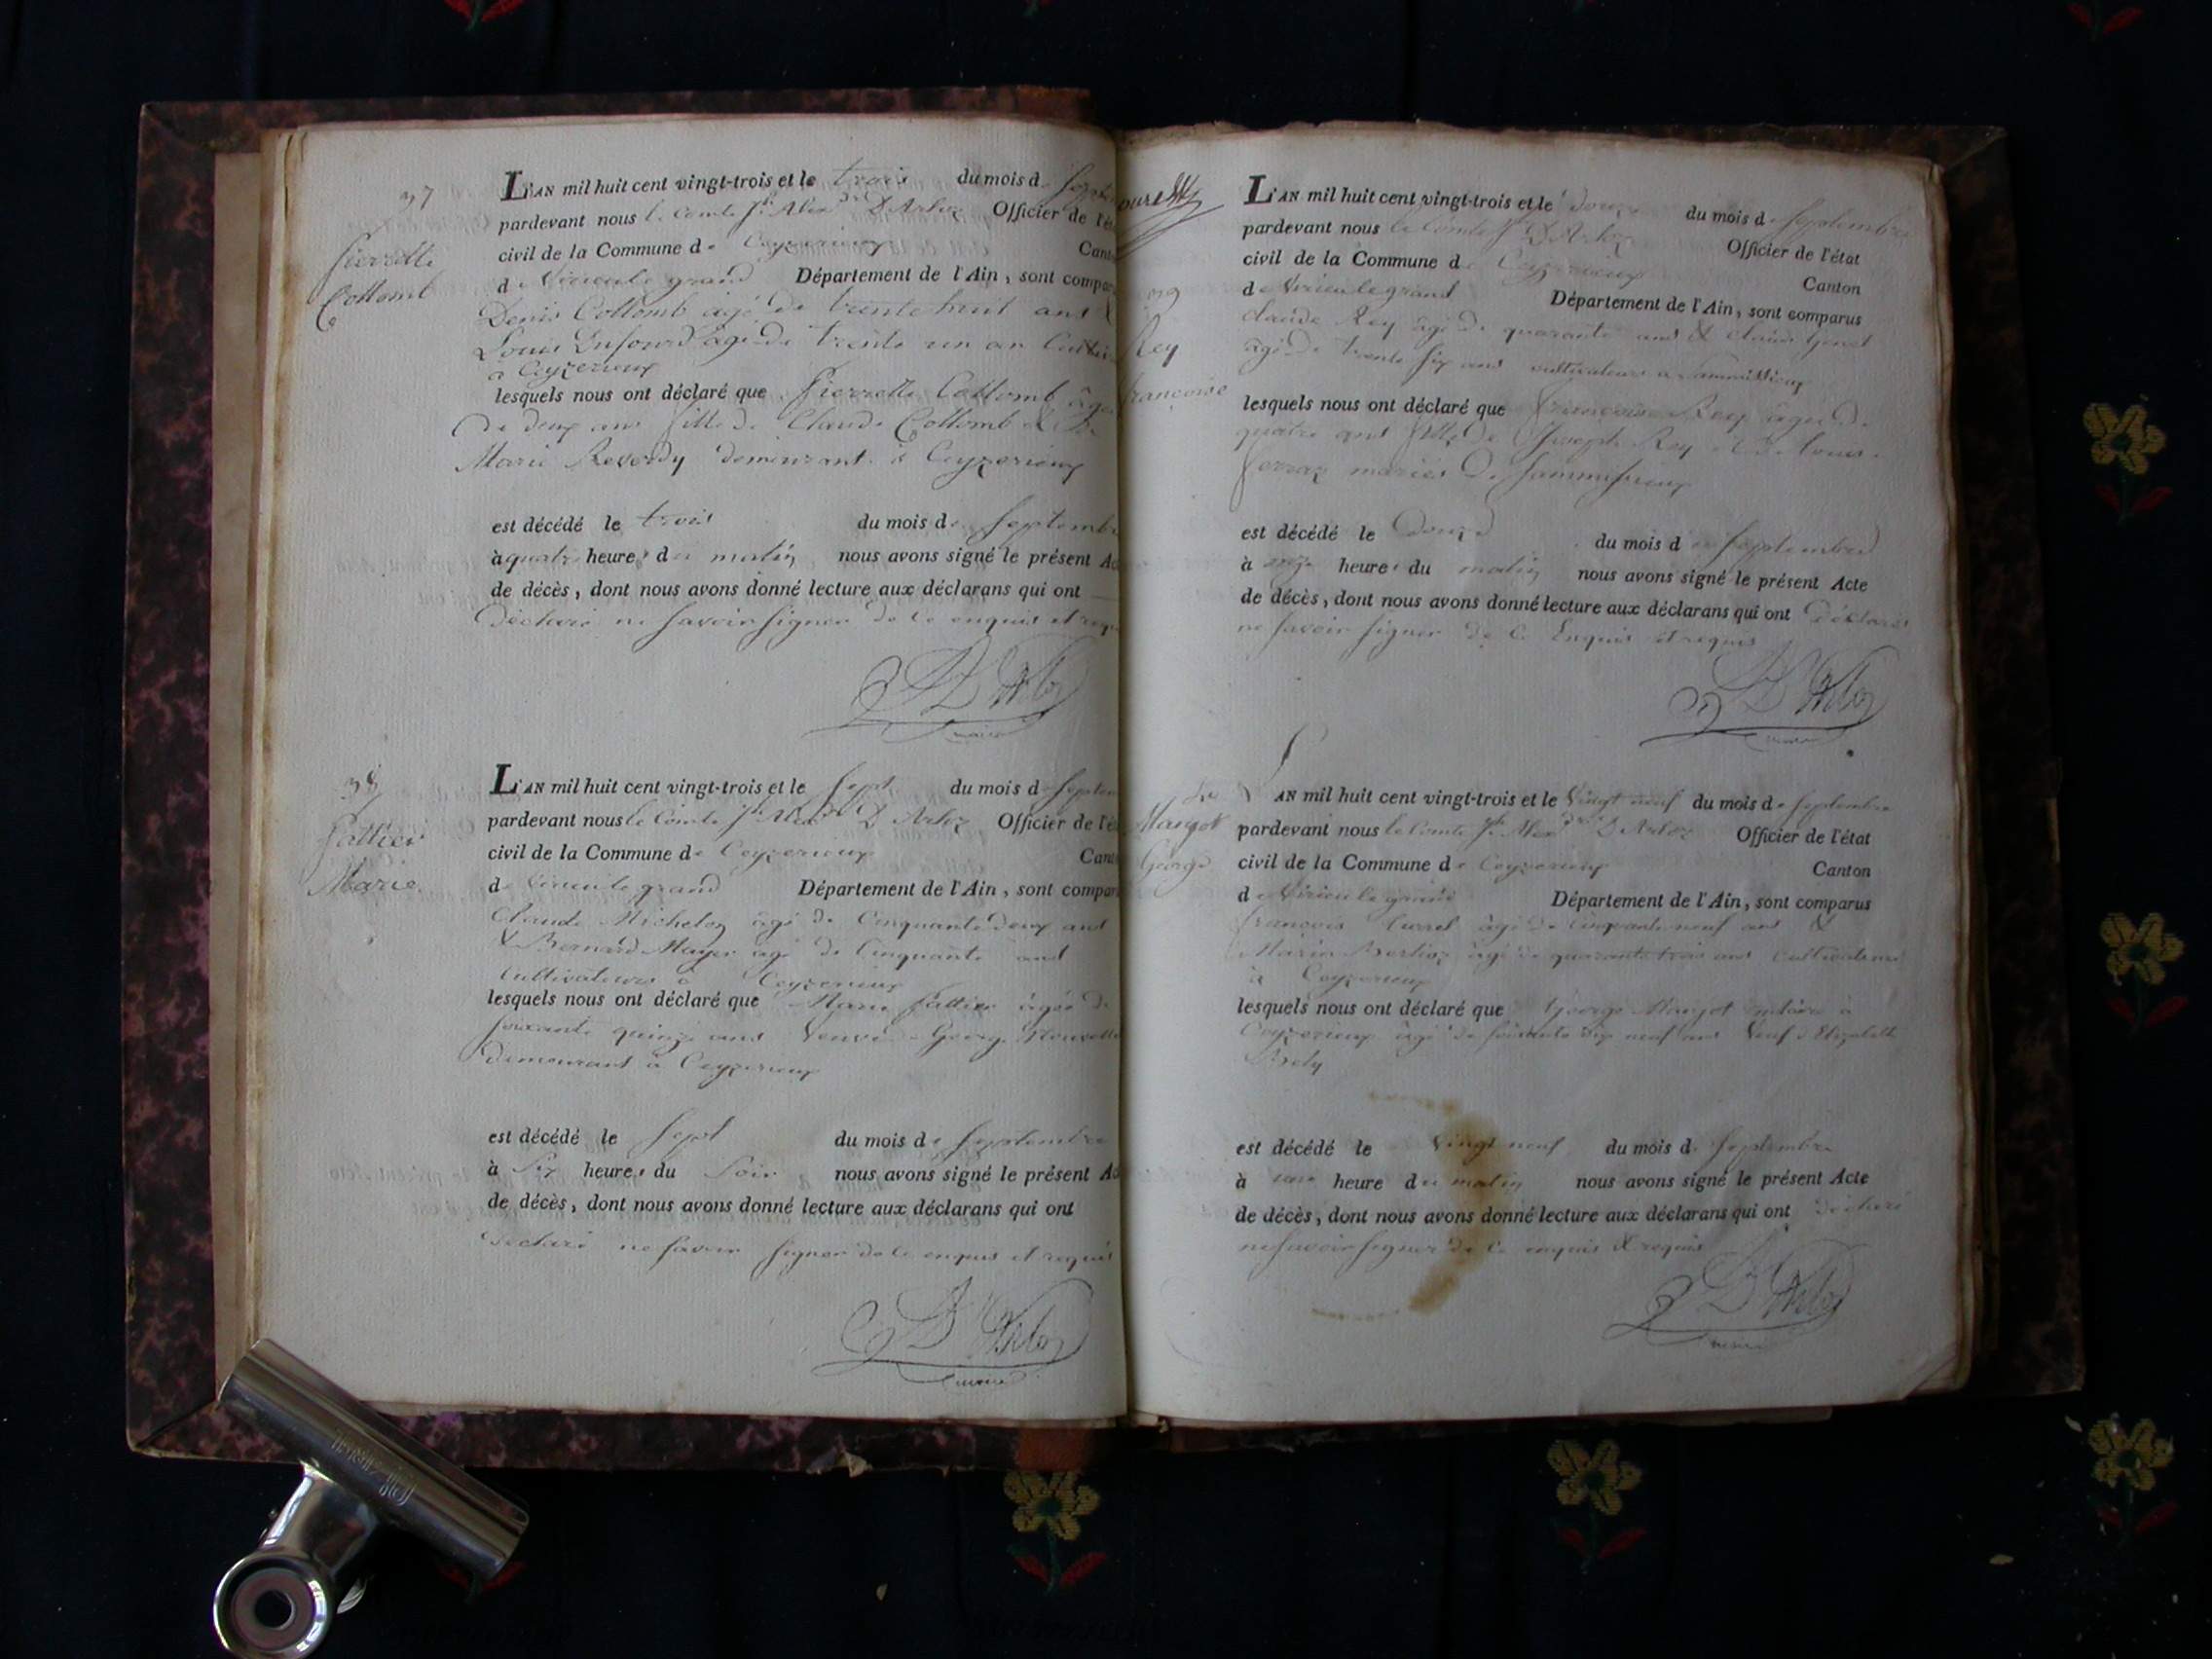 37
Pierrette
Collomb
L'AN mil huit cent vingt-trois et le trois du mois de Septem
pardevant nous le Comte Jh Alexdre D'Arloz Officier de l'ét
civil de la Commune de Ceyzerieux Cant
de Virieu le grand Département de l'Ain, sont compar
Denis Collomb agé de trente huit ans &
Louis Dufourd agé de trente un an Cultiv
a Ceyzerieux
lesquels nous ont déclaré que Pierrette Collomb âgée
de deux ans fille de Claude Collomb & de
Marie Reverdy demeurant à Ceyzerieux
est décédé le trois du mois de Septembre
à quatre heures du matin, nous avons signé le présent Ac
de décès, dont nous avons donné lecture aux déclarans qui ont
déclaré ne savoir signer de ce enquis et requ
D'Arloz
maire
38
Pattier
Marie
L'AN mil huit cent vingt-trois et le Sept du mois de Septem
pardevant nous le Comte Jh Alexdre D'Arloz Officier de l'ét
civil de la Commune de Ceyzerieux Cant
de Virieu le grand Département de l'Ain, sont compar
Claude Michelon âgé de Cinquante deux ans
& Bernard Mayer agé de Cinquante ans
Cultivateurs à Ceyzerieux
lesquels nous ont déclaré que Marie Pattier âgée de
soixante quinze ans Veuve George
demeurant à Ceyzerieux
est décédé le Sept du mois de Septembre
à Six heures du Soir nous avons signé le présent Ac
de décès, dont nous avons donné lecture aux déclarans qui ont
déclaré ne savoir signer de ce enquis et requis
D'Arloz
maire
39
Rey
françoise
L'AN mil huit cent vingt-trois et le douze du mois de Septembre
pardevant nous le Comte Jh D'Arloz Officier de l'état
civil de la Commune de Ceyzerieux Canton
de Virieu le grand Département de l'Ain, sont comparus
Claude Rey âgé de quarante ans & Claude Genet
âgé de trente six ans cultivateurs a Sammissieux
lesquels nous ont déclaré que françoise Rey âgée de
quatre ans fille de Joseph Rey & de Louise
ferraz mariés de Sammissieux
est décédé le Douze du mois de Septembre
à onze heures du matin nous avons signé le présent Acte
de décès, dont nous avons donné lecture aux déclarans qui ont déclaré
ne savoir signer de ce Enquis et requis
D'Arloz
maire
Margot
George
L'AN mil huit cent vingt-trois et le Vingt neuf du mois de Septembre
pardevant nous le Comte Jh Alexdre D'Arloz Officier de l'état
civil de la Commune de Ceyzerieux Canton
de Virieu le grand Département de l'Ain, sont comparus
françois âgé de Cinquante neuf ans &
Marin Berlioz âgé de quarante trois ans cultivateurs
à Ceyzerieux
lesquels nous ont déclaré que George Margot à
Ceyzerieux âgé de soixante dix neuf ans Veuf d'Elizabeth
Bely
est décédé le Vingt neuf du mois de Septembre
à une heure du matin nous avons signé le présent Acte
de décès, dont nous avons donné lecture aux déclarans qui ont déclaré
ne savoir signer de ce enquis & requis
D'Arloz
maire